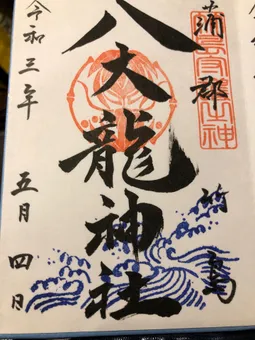 蒲郡
竹島
八大龍神社
令和三年
五月四日